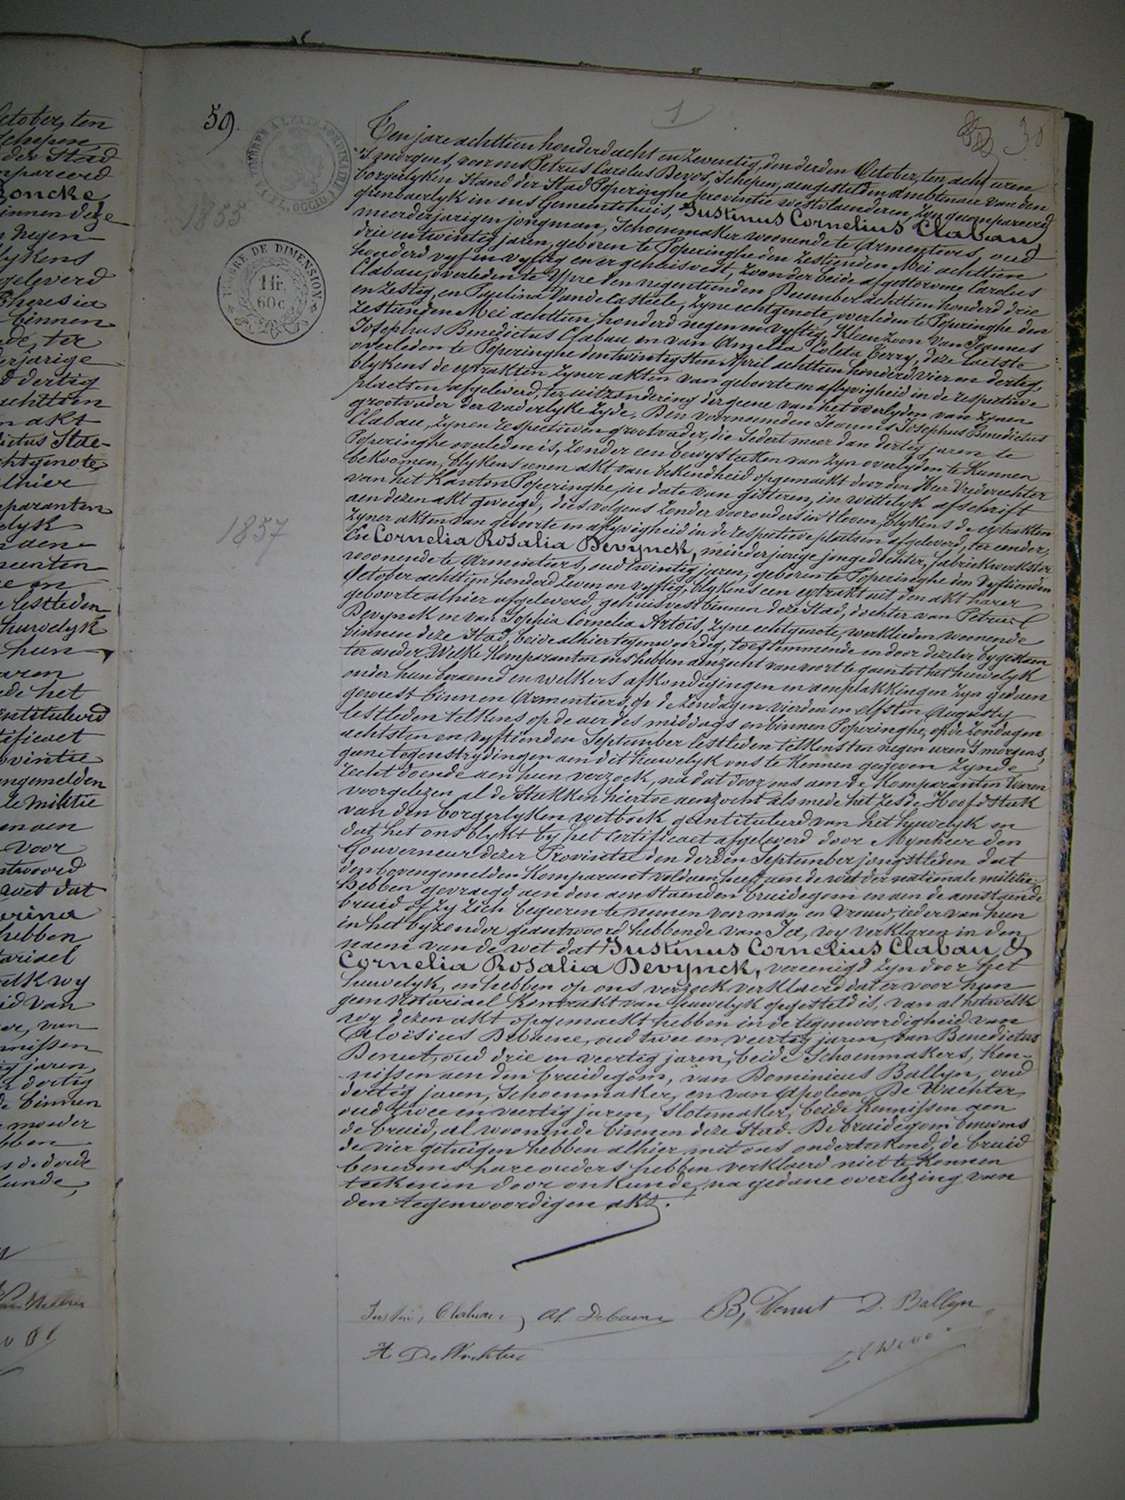 59.
1
30
1855
TIMBRE DE DIMENSION
1 fr.
60 c.
1857
Ten jare achttien honderd acht en zeventig, den derden October, ten acht uren
's morgens, voor ons Petrus Carolus Devos, Schepen, aengestelden Ambtenaer van den
borgerlyken Stand der Stad Poperinghe provintie Westvlaenderen, zyn gecompareerd
openbaerlyk in ons Gemeentehuis, Justinus Cornelius Clabau,
meerderjarigen jongman, Schoenmaker woonende te Armentiers, oud
drie en twintig jaren, geboren te Poperinghe den zestienden Mei achttien
honderd vyf en vyftig en er gehuisvest, Zoon der beide afgestorvene Carolus
Clabau, overleden te Ypre den negentienden December achttien honderd drie
en zestig, en Paulina Vandecasteele, zyne echtgenote, overleden te Poperinghe den
zestienden Mei achttien honderd negen en vyftig, Kleenzoon van Joannes
Josephus Benedictus Clabau en van Amelia Coleta Terry, deze laetste
overleden te Poperinghe den twintigsten April achttien honderd vier en dertig,
blykens de extrakten zyner akten van geboorte en aflyvigheid in de respective
plaetsen afgeleverd, ter uitzondering dergeene van het overlyden van zynen
grootvader der vaderlyke zyde, Den voornoemden Joannes Josephus Benedictus
Clabau, zynen respectieven grootvader, die sedert meer dan dertig jaren te
Poperinghe overleden is, zonder een bewysteeken van zyn overlyden te kunnen
bekoomen, blykens eenen akt van bekendheid opgemaekt door den Heer Vrederechter
van het Kanton Poperinghe, in date van gisteren, in wettelyk afschrift
aen dezen akt gevoegd, dies volgens zonder voorouders in't leven, blykens de extrakten
zyner akten van geboorte en aflyvigheid in de respectieve plaetsen afgeleverd, ter eender;
En Cornelia Rosalia Devynck, minderjarige jonge dochter, fabriekwerkster
woonende te Armentiers, oud twintig jaren, geboren te Poperinghe den vyftienden
October achttien honderd zeven en vyftig, blykens een extrakt uit den akt harer
geboorte alhier afgeleverd, gehuisvest binnen deze Stad, dochter van Petrus
Devynck en van Sophia Cornelia Artois, zyne echtgenote, werklieden woonende
binnen deze Stad, beide alhier tegenwoordig, toestemmende en door dezelve bygestaen
ter ander. Welke Komparanten ons hebben aenzocht van voort te gaen tot het huwelyk
onder hun beraemd en welkers afkondigingen en aenplakkingen zyn gedaen
geweest binnen Armentiers, op de Zondagen vierden en elfsten Augusty
lestleden telkens op de uer des middags en binnen Poperinghe, op de Zondagen
achtsten en vyftienden September lestleden telkens ten negen uren 's morgens,
gene tegenstrydingen aen dit huwelyk ons te kennen gegeven zynde
recht doende aen hun verzoek, na dat door ons aen de Komparanten waren
voorgelezen al de Stukken hiertoe aenzocht als mede het zesde Hoofdstuk
van den borgerlyken wetboek geïntituleerd van het huwelyk en
dat het ons blykt by het certificaet afgeleverd door Mynheer den
Gouverneur dezer Provintie den derden September jongstleden dat
den bovengemelden Komparant voldaen heeft aen de wet der nationale militie
Hebben gevraegd aen den aenstaenden bruidegom en aen de aenstaende
bruid of zy zich begeeren te nemen voor man en vrouw, ieder van hun
in het byzonder geantwoord hebbende van Ja, wy verklaren in den
naem van de wet dat Justinus Cornelius Clabau, &
Cornelia Rosalia Devynck, vereenigd zyn door het
huwelyk, en hebben op ons verzoek verklaerd dat er voor hun
geen notariael Kontrakt van huwelyk opgesteld is, van al hetwelk
wy dezen akt opgemaekt hebben in de tegenwoordigheid van
Aloïsius Debaene, oud twee en veertig jaren, van Benedictus
Denut, oud drie en veertig jaren, beide Schoenmakers, Ken-
nissen aen den bruidegom, van Dominicus Ballyn, oud
dertig jaren, Schoenmaker, en van Apoleon De Wachter,
oud twee en veertig jaren, Slotmaker, beide Kennissen aen
de bruid, al woonende binnen deze Stad. De bruidegom benevens
de vier getuigen hebben alhier met ons onderteekend, de bruid
benevens hare ouders hebben verklaerd niet te kunnen
teekenen door onkunde, na gedane overlezing van
den tegenwoordigen akt.
Al. Debaene B, Denut D. Ballyn
A De Wachter